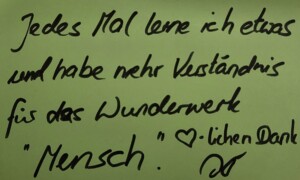 Jedes Mal lerne ich etwas
und habe mehr Verständnis
für das Wunderwerk
"Mensch." ♡-lichen Dank